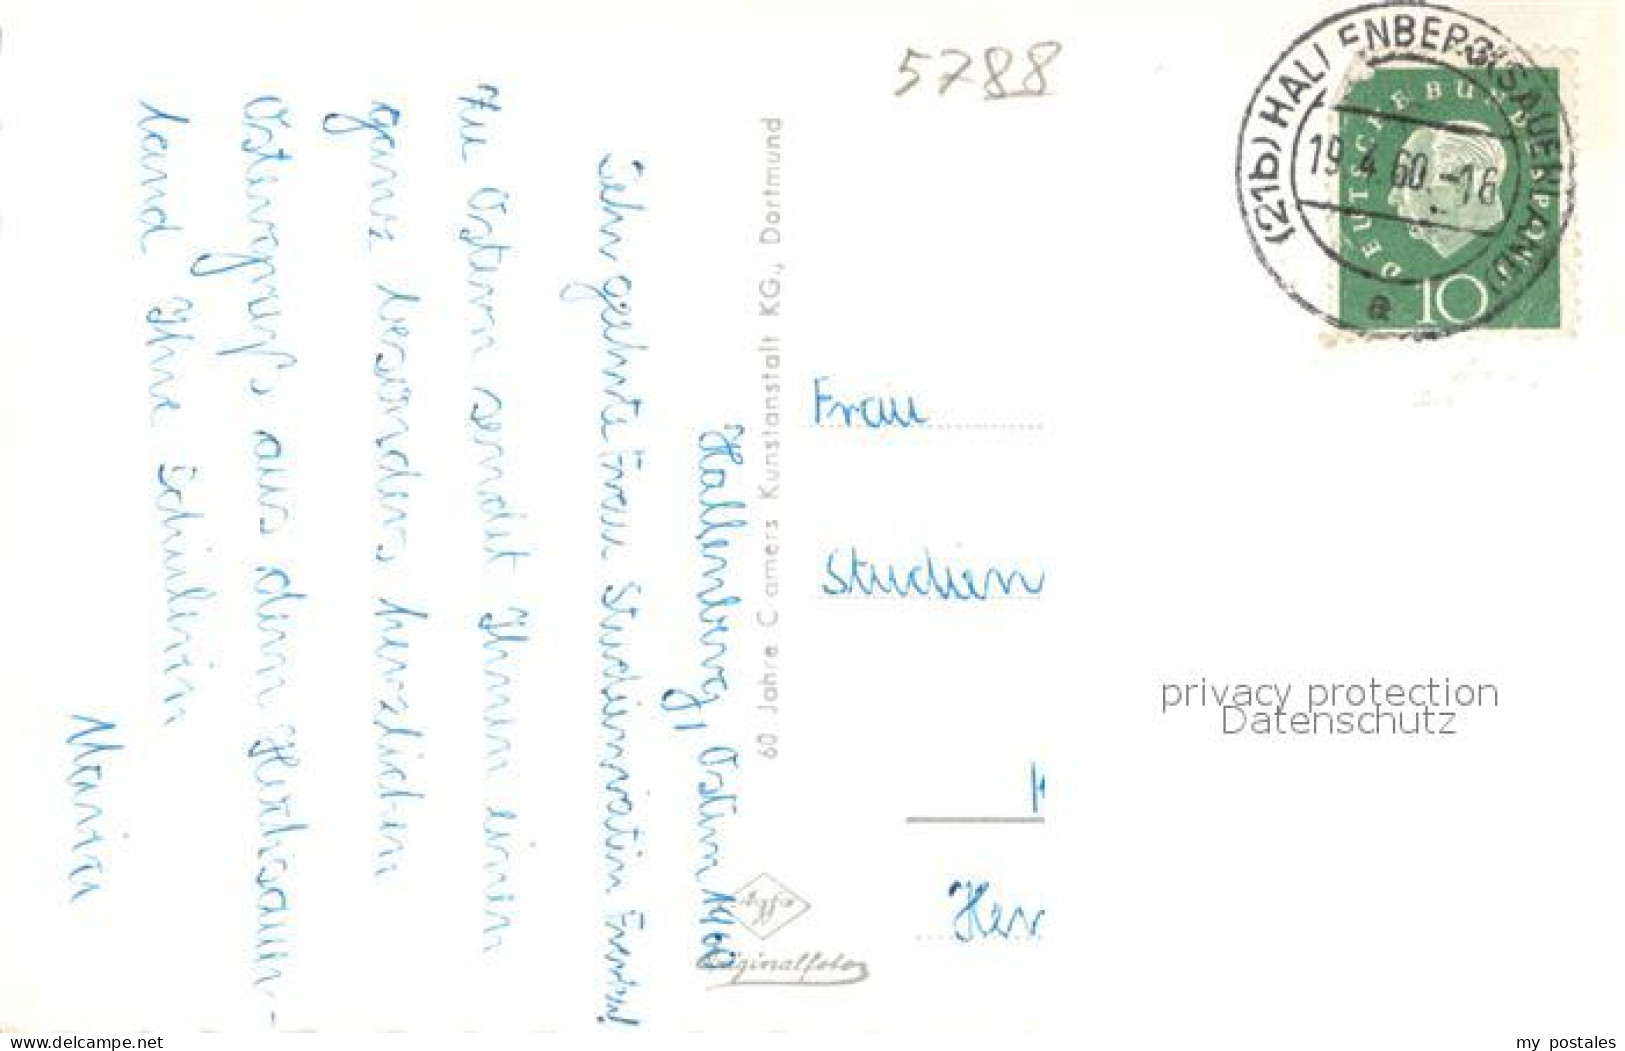 5788
(21b) HALLENBERG (SAUERLAND)
19.4.60.-16
a
DEUTSCHE BUNDESP
10
Hallenberg, Ostern 1960
Sehr geehrte Frau Studienrätin
Zu Ostern sendet Ihnen einen
ganz besonders herzlichen
Ostergruß aus dem Hochsauer-
land Ihre Schülerin
Maria
60 Jahre Camers Kunstanstalt KG., Dortmund
Agfa
Originalfoto
Frau
Studien
Her
privacy protection
Datenschutz
www.delcampe.net
my_postales